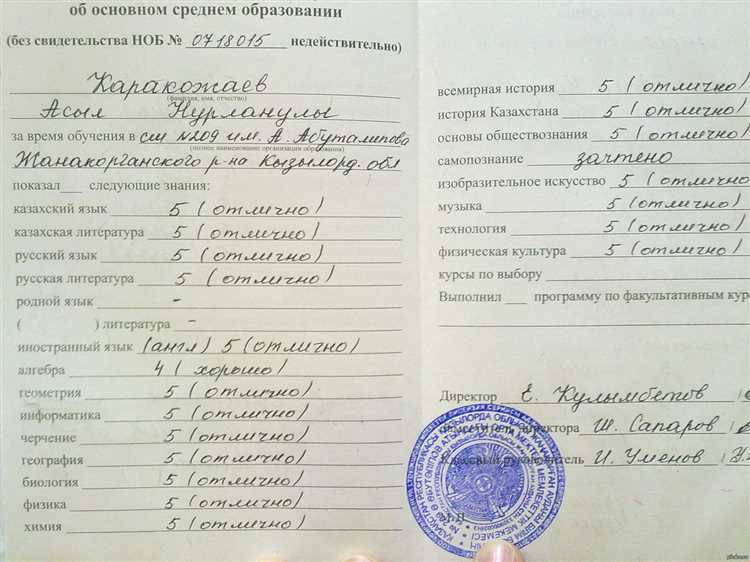 об основном среднем образовании
(без свидетельства НОБ № 0718015 недействительно)
Каракожаев
(фамилия, имя, отчество)
Асыл Нурланулы
за время обучения в сш №209 им. А. Абуталипова
(полное наименование организации образования)
Жанакорганского р-на Кызылорд. обл
показал___ следующие знания:
казахский язык 5 (отлично)
казахская литература 5 (отлично)
русский язык 5 (отлично)
русская литература 5 (отлично)
родной язык -
( ) литература -
иностранный язык (англ) 5 (отлично)
алгебра 4 (хорошо)
геометрия 5 (отлично)
информатика 5 (отлично)
черчение 5 (отлично)
география 5 (отлично)
биология 5 (отлично)
физика 5 (отлично)
химия 5 (отлично)
всемирная история 5 (отлично)
история Казахстана 5 (отлично)
основы обществознания 5 (отлично)
самопознание зачтено
изобразительное искусство 5 (отлично)
музыка 5 (отлично)
технология 5 (отлично)
физическая культура 5 (отлично)
курсы по выбору
Выполнил ___ программу по факультативным кур
Директор Е. Кулымбетов
Заместитель директора Ш. Сапаров
Классный руководитель И. Уменов